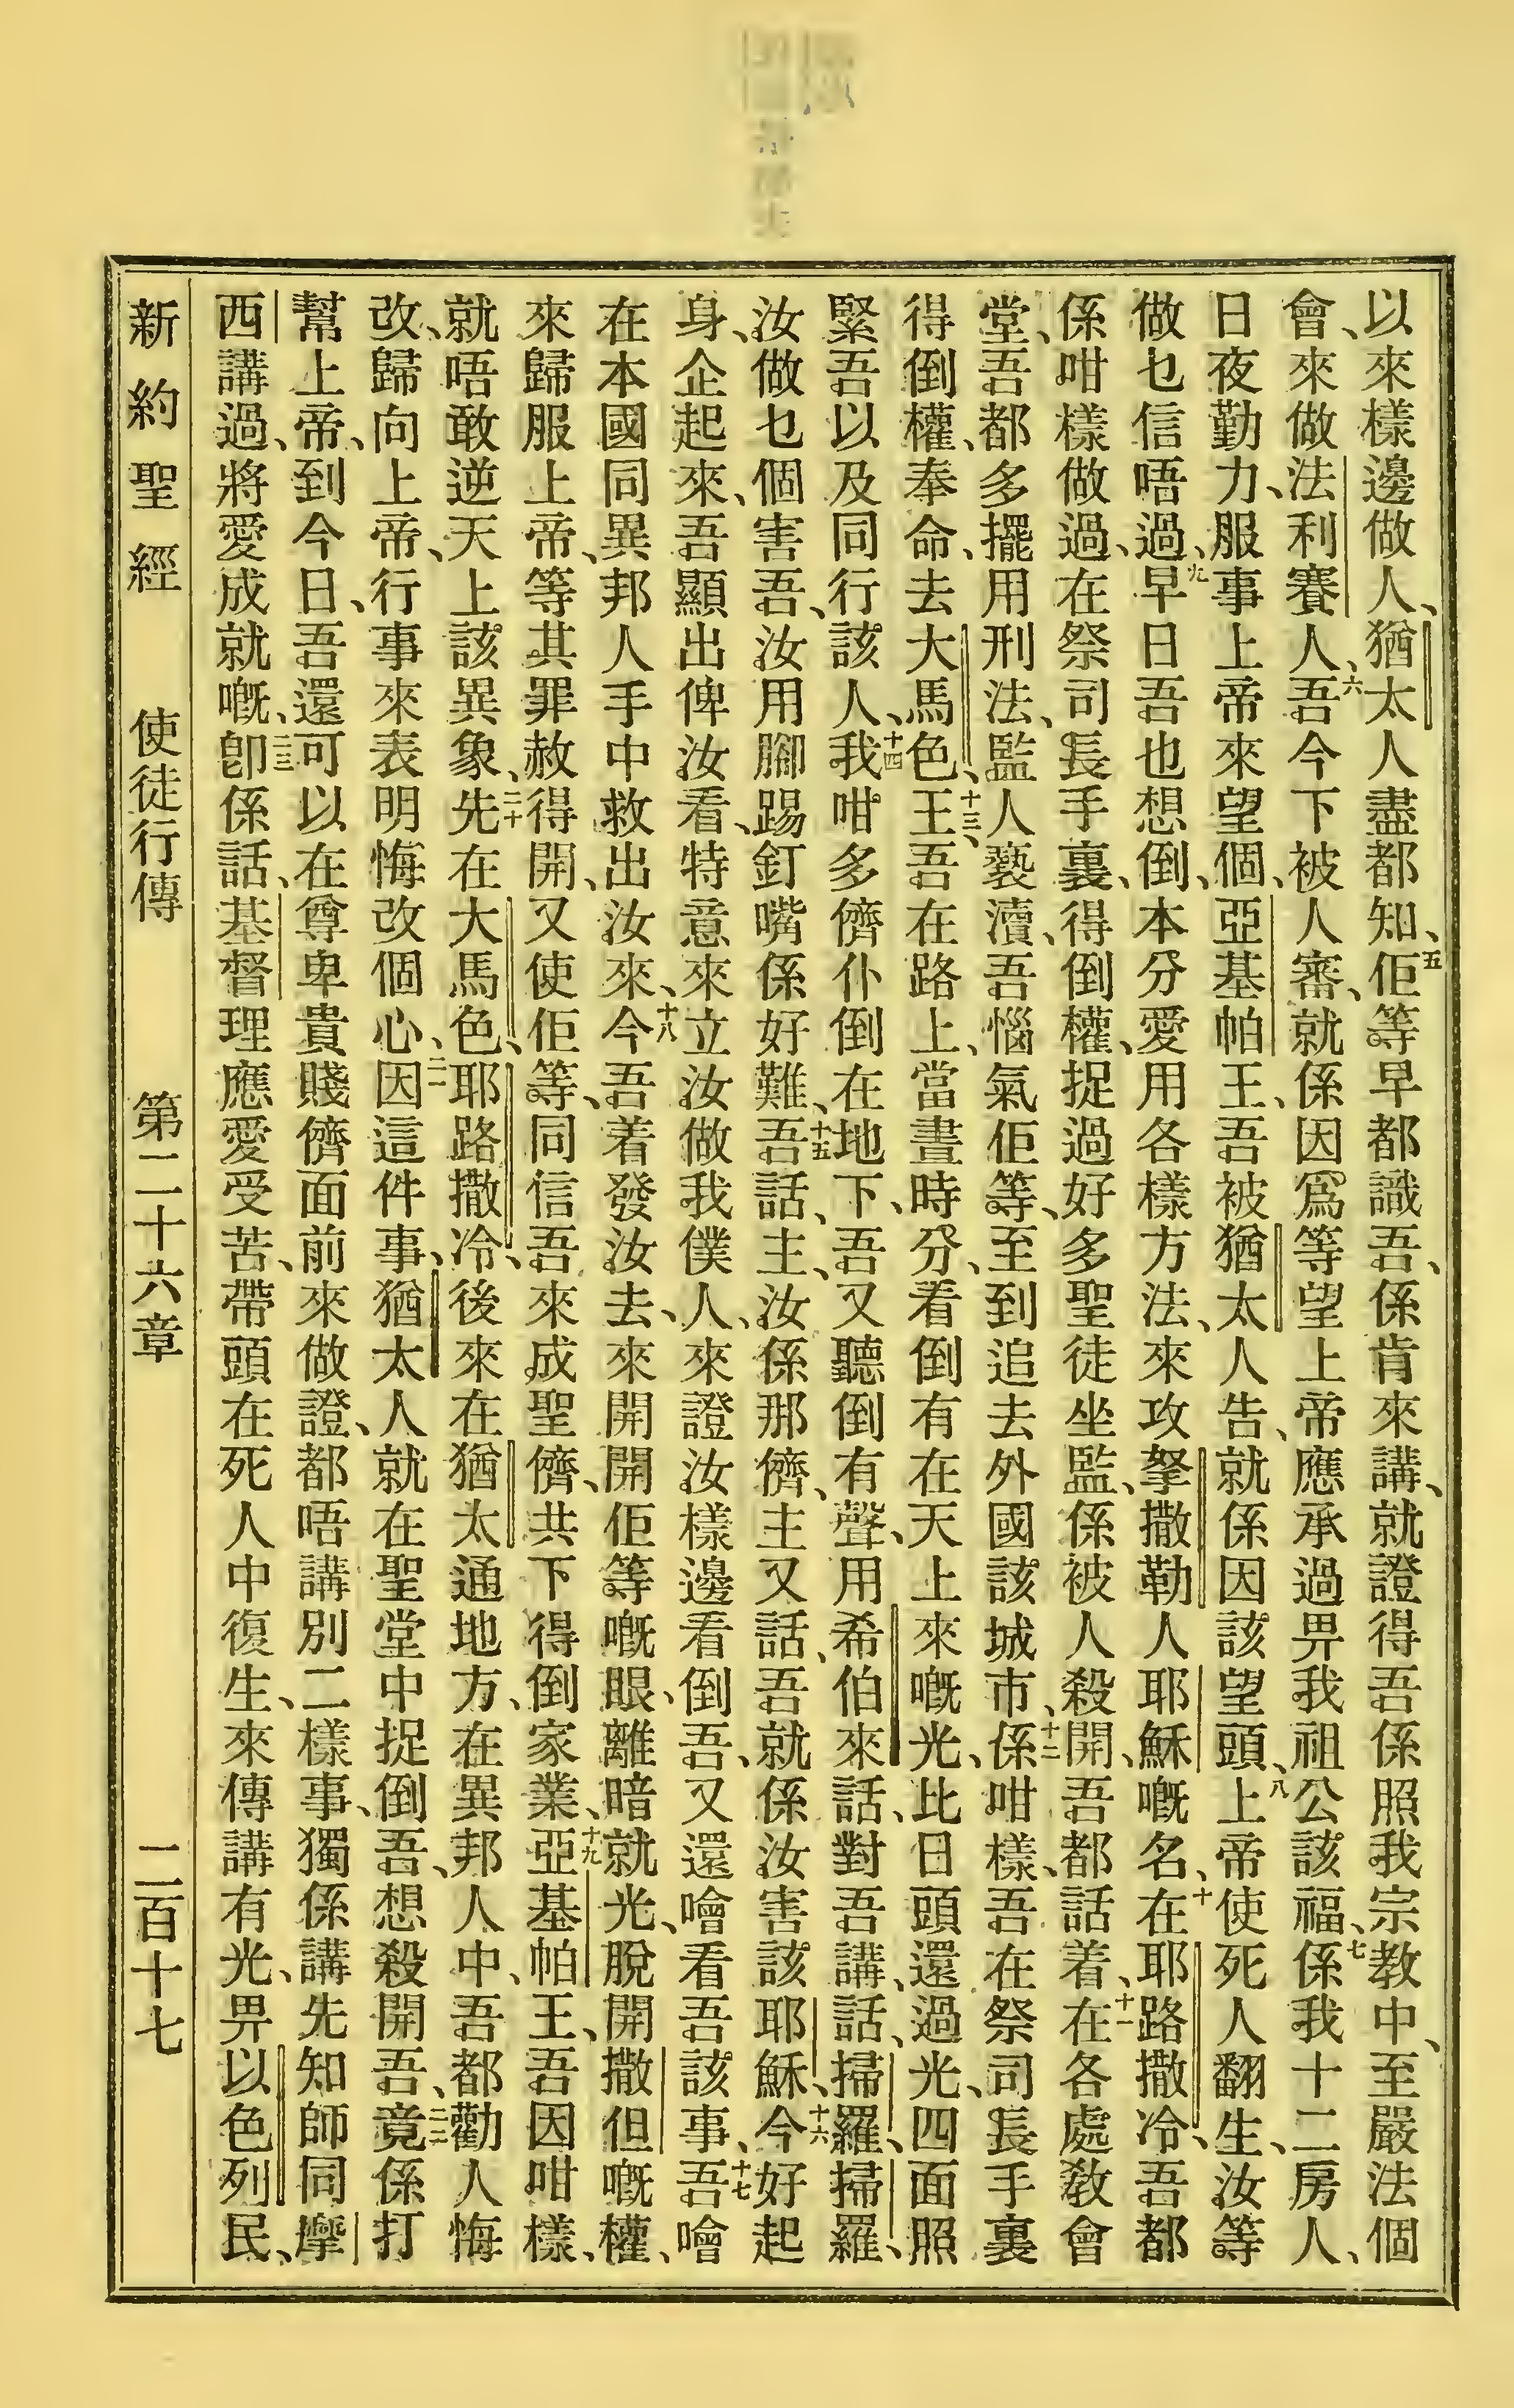 以來樣邊做人、猶太人盡都知、五佢等早都識吾、係肯來講、就證得吾係照我宗教中、至嚴法個
會、來做法利賽人、六吾今下被人審、就係因爲等望上帝應承過畀我祖公該福、七係我十二房人、
日夜勤力、服事上帝來望個、亞基帕王、吾被猶太人告、就係因該望頭、八上帝使死人翻生、汝等
做乜信唔過、九早日吾也想倒、本分愛用各樣方法、來攻拏撒勒人耶穌嘅名、十在耶路撒冷、吾都
係咁樣做過、在祭司長手裏、得倒權、捉過好多聖徒坐監、係被人殺開、吾都話着、十一在各處敎會
堂、吾都多擺用刑法、監人褻瀆、吾惱氣佢等、至到追去外國該城市、十二係咁樣、吾在祭司長手裏
得倒權、奉命、去大馬色、十三王、吾在路上、當晝時分、看倒有在天上來嘅光、比日頭還過光、四面照
緊吾以及同行該人、十四我咁多儕仆倒在地下、吾又聽倒有聲、用希伯來話、對吾講、話、掃羅、掃羅、
汝做乜個害吾、汝用腳踢釘嘴係好難、十五吾話、主、汝係那儕、主又話、吾就係汝害該耶穌、十六今好起
身、企起來、吾顯出俾汝看、特意來立汝做我僕人、來證汝樣邊看倒吾、又還噲看吾該事、十七吾噲
在本國同異邦人手中救出汝來、十八今吾着發汝去、來開開佢等嘅眼、離暗就光、脫開撒但嘅權、
來歸服上帝、等其罪赦得開、又使佢等、同信吾來成聖儕、共下得倒家業、十九亞基帕王、吾因咁樣、
就唔敢逆天上該異象、二十先在大馬色、耶路撒冷、後來在猶太通地方、在異邦人中、吾都勸人悔
改、歸向上帝、行事來表明悔改個心、二一因這件事、猶太人就在聖堂中捉倒吾、想殺開吾、二二竟係打
幫上帝、到今日、吾還可以在尊卑貴賤儕面前來做證、都唔講別二樣事、獨係講先知師同摩
西講過、將愛成就嘅、二三卽係話、基督理應愛受苦、帶頭在死人中復生、來傳講有光、畀以色列民、
新約聖經 使徒行傳 第二十六章 二百十七